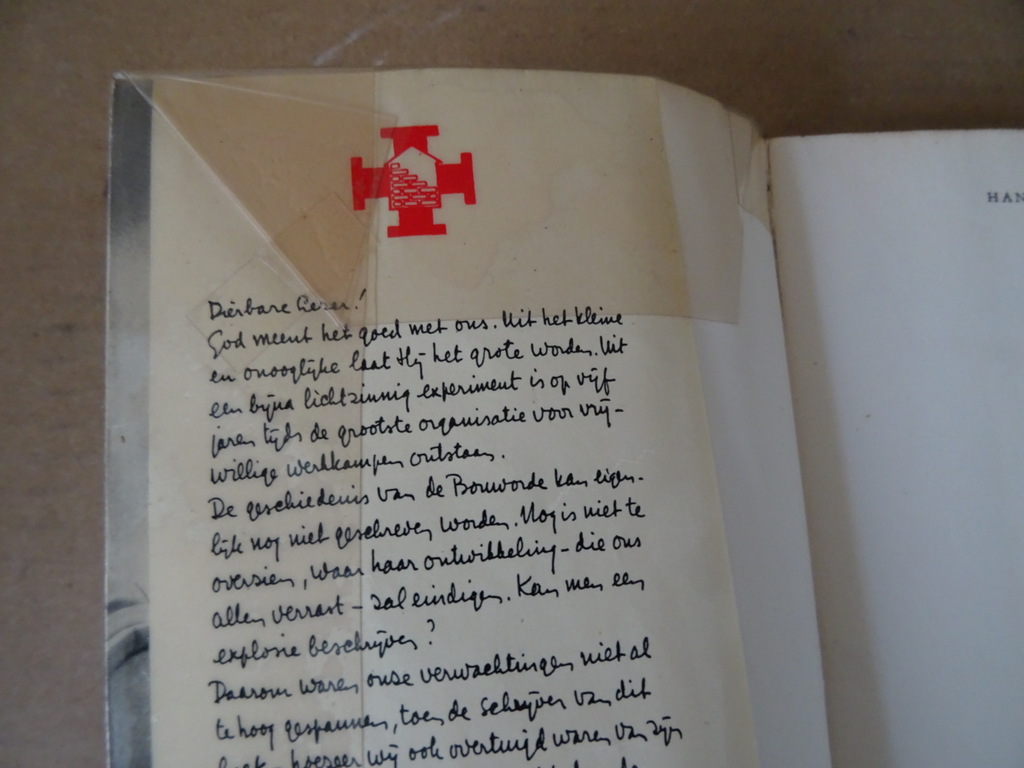 HAN
Dierbare Lezer!
God meent het goed met ons. Uit het kleine
en onooglijke laat Hij het grote worden. Uit
een bijna lichtzinnig experiment is op vijf
jaren tijds de grootste organisatie voor vrij-
willige werkkampen ontstaan.
De geschiedenis van de Bouworde kan eigen-
lijk nog niet geschreven worden. Nog is niet te
overzien, waar haar ontwikkeling - die ons
allen verrast - zal eindigen. Kan men een
explosie beschrijven?
Daarom waren onze verwachtingen niet al
te hoog gespannen, toen de schrijver van dit
boek - hoezeer wij ook overtuigd waren van zijn